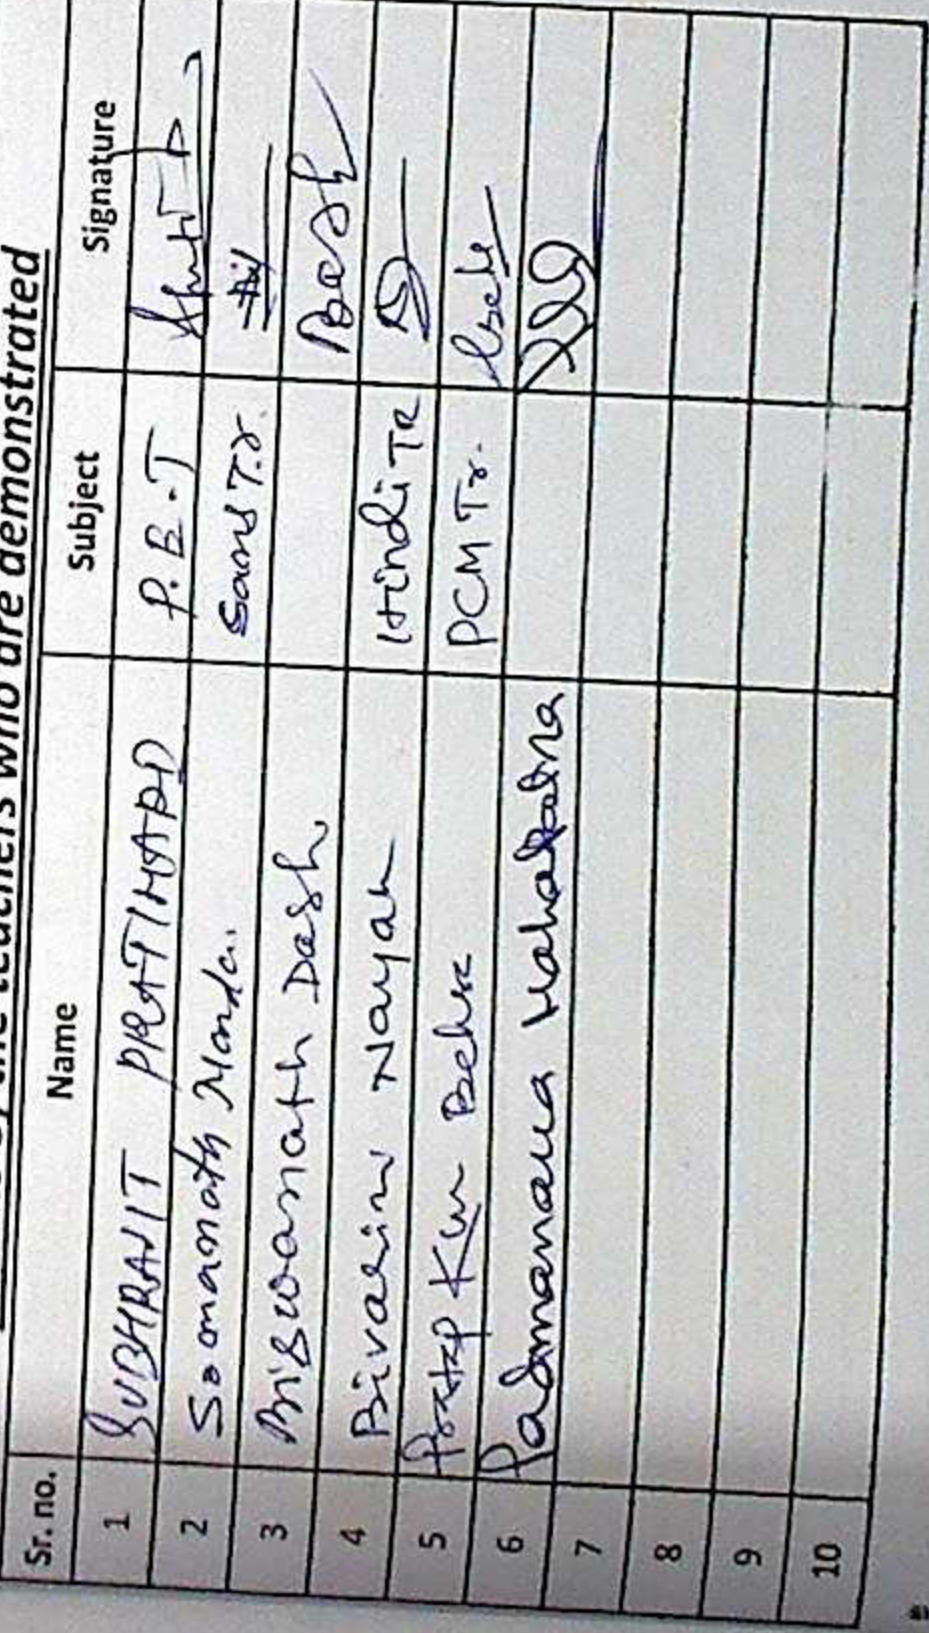 the teachers who are demonstrated
Sr. no. Name Subject Signature
1 SUBHRANIT PRATIHARI P.E.T
2 Somanath Manda Sans T.r
3 Biswanath Dash Dash
4 Nayak Hindi TR
5 Pratap Ku Behera PCM Tr.
6 Padmanava Mahapatra
7
8
9
10